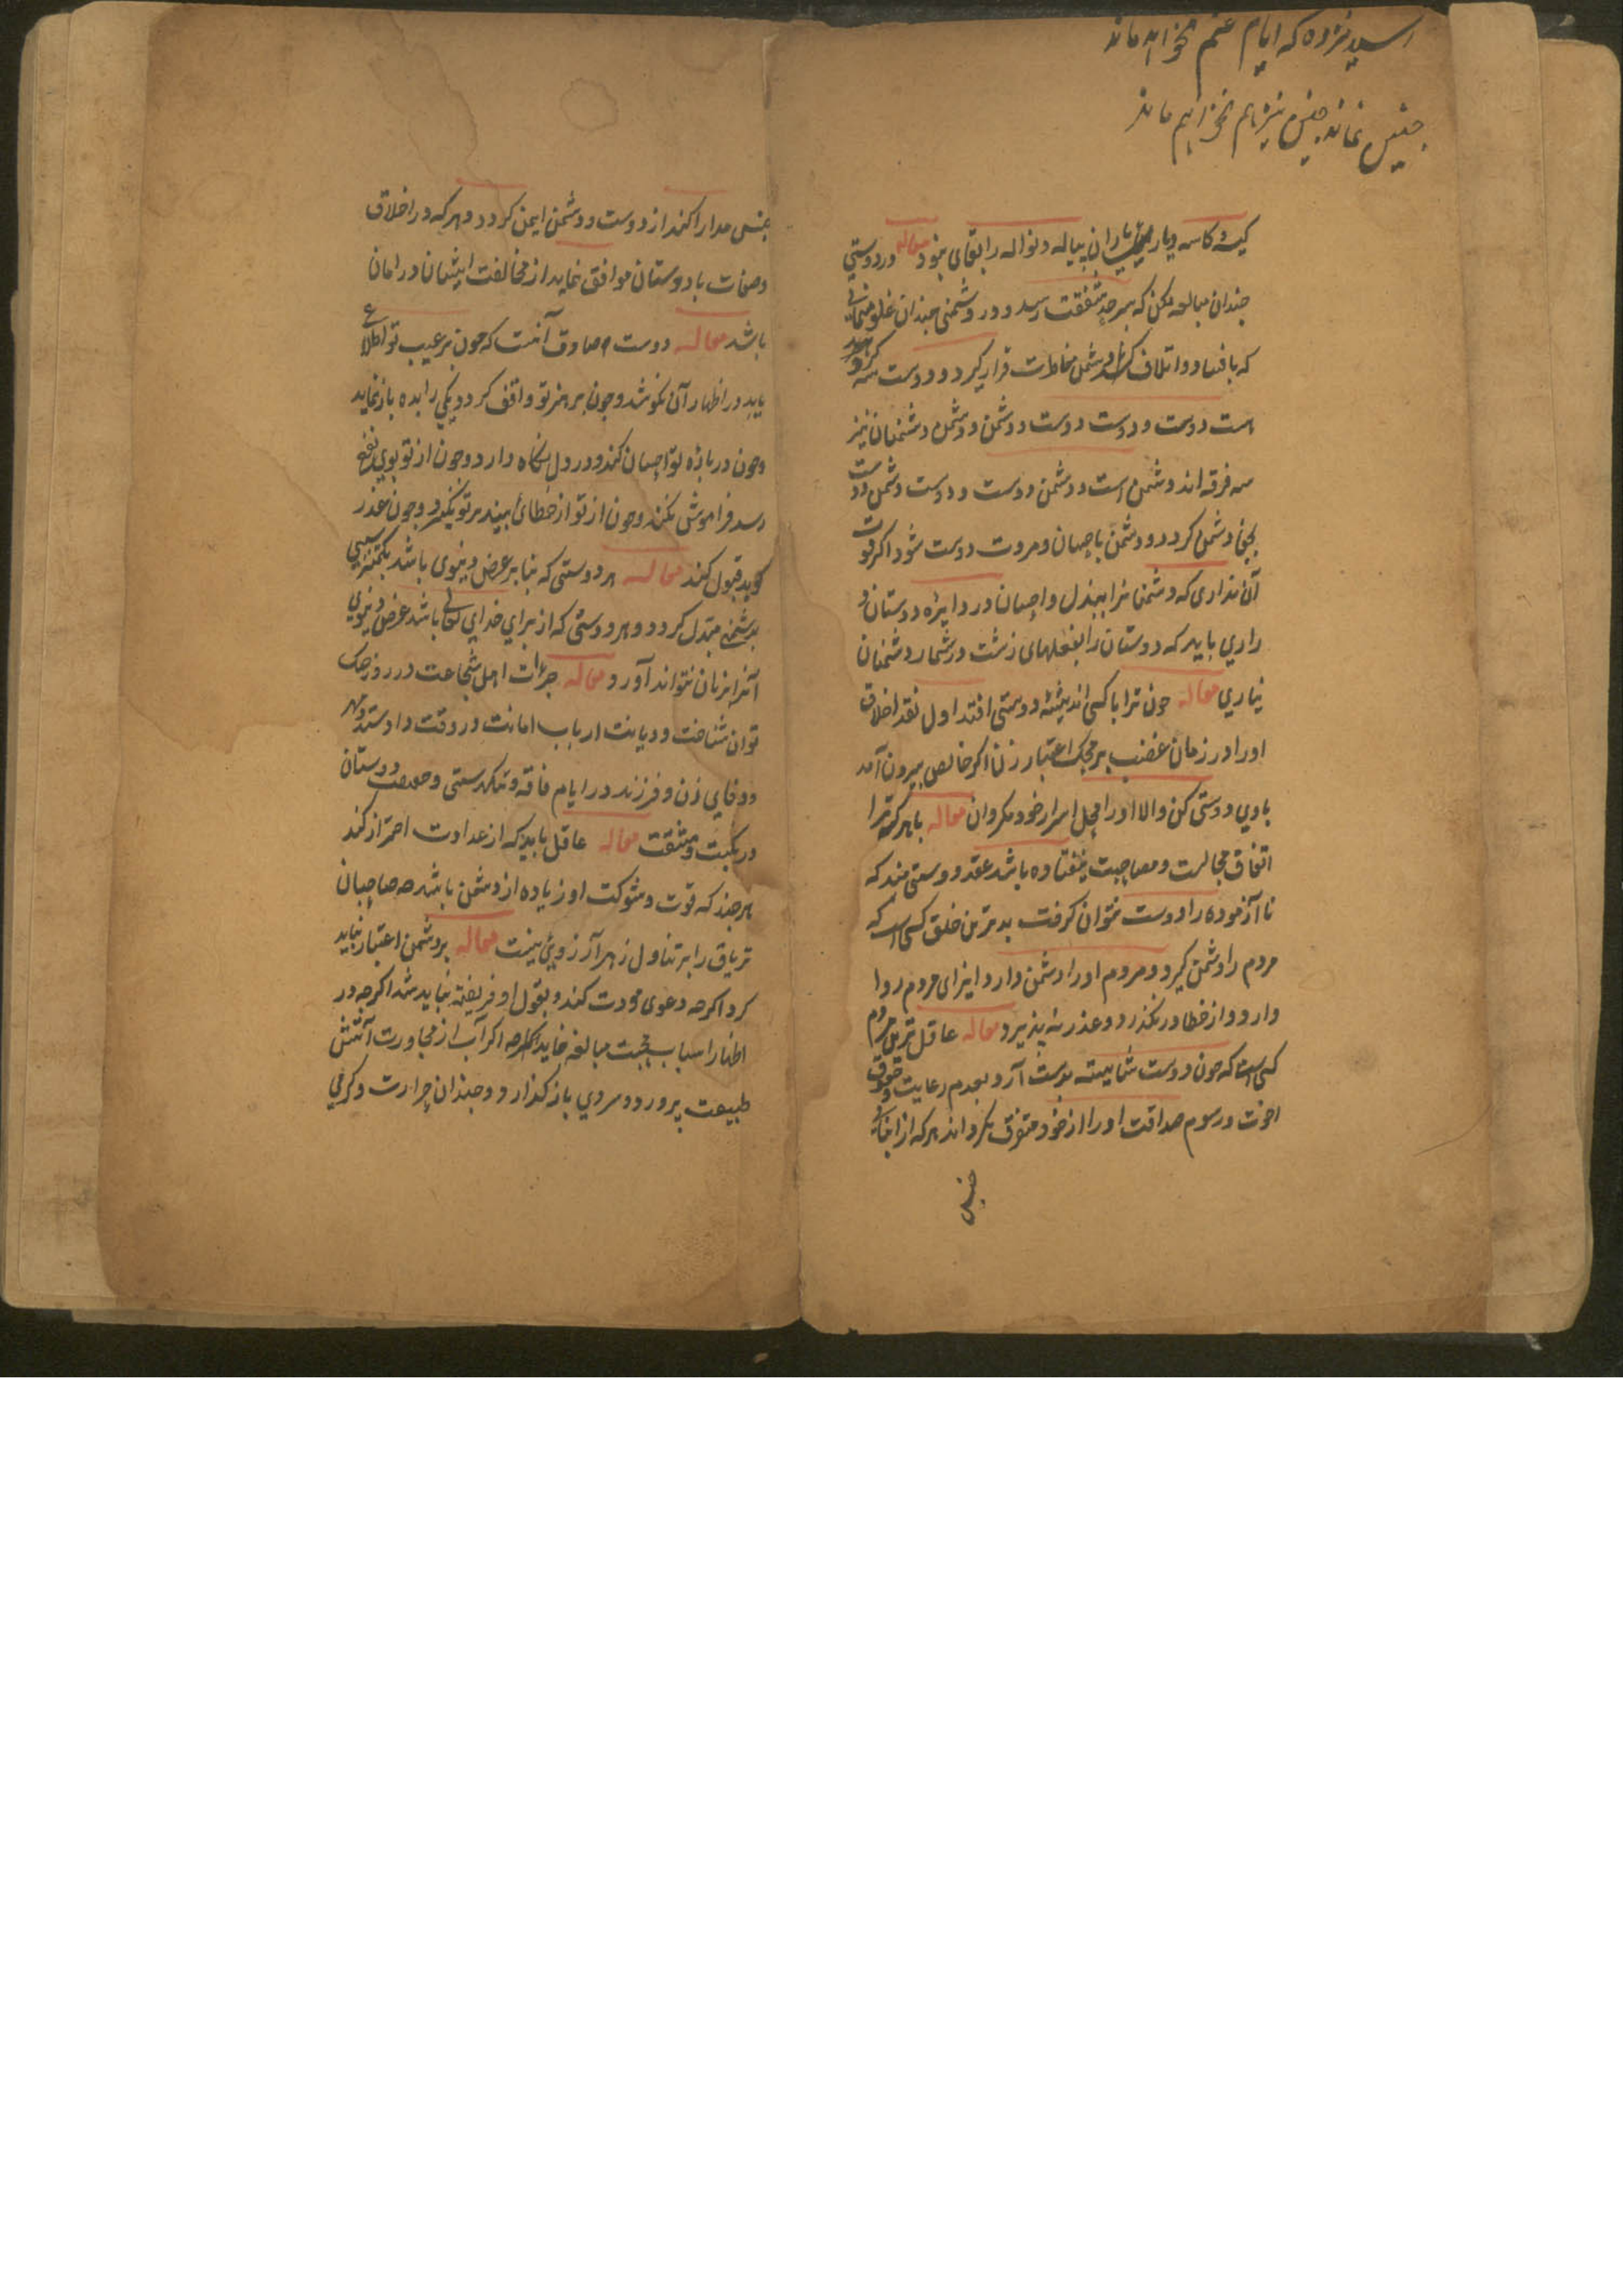 رسید مژده که ایام غم نخواهد ماند
چنین نماند چنین نیز هم نخواهد ماند
کیسه کاسه و یاری یاران پیاله و نواله را بقای نبود مقاله در دوستی
جندان مبالغه مکن که بسرحد شفقت رسد و در دشمنی جندان غلو منمای
که بافساد و اتلاف دشمن مخاطرت قرار کیرد و دوست سه کروه
است دوست و دوست دوست و دشمن دشمن و دشمنان نیز
سه فرقه اند دشمن است و دشمن دوست و دوست دشمن دوست
بجفا دشمن کردد و دشمن باحسان و مروت دوست شود اکر قوت
آن نداری که دشمنانرا ببذل و احسان در دایره دوستان در
آری باید که دوستان را بفعلهای زشت در شمار دشمنان
نیاری مقاله جون ترا با کسی اندیشه دوستی افتد اول نقد اخلاق
او را در زمان غضب بر محک اعتبار زن اکر خالص بیرون آمد
با وی دوستی کن والا او را محل اسرار خود مکردان مقاله با هر که ترا
اتفاق مجالست و مصاحبت نیفتاده باشد عقد دوستی مبند که
نا آزموده را دوست نتوان کرفت بدترین خلق کسی است که
مردم را دشمن کیرد و مردم او را دشمن دارد ایذای مردم روا
دارد و از خطا در نکذرد و عذر نپذیرد مقاله عاقل ترین مردم
کسی است که جون دوست شایسته بدست آرد بعدم رعایت حقوق
اخوت و رسوم صداقت او را از خود متفرق نکرداند هر که از ابنای
جنس
جنس مدارا کند از دوست و دشمن ایمن کردد و هر که در اخلاق
و صفات با دوستان موافق نماید از مخالفت ایشان در امان
باشد مقاله دوست صادق آنست که جون بر عیب تو اطلاع
یابد در اظهار آن نکوشد و جون بر هنر تو واقف کردد یکی را بده باز نماید
و جون در باره تو احسان کند در دل نکاه دارد و جون از تو بوی نفع
رسد فراموش نکند و جون از تو از خطائی بیند بر تو نکیرد و جون عذر
کوید قبول کند مقاله هر دوستی که بنا بر غرض دنیوی باشد بکمتر سببی
بدشمنی مبتدل کردد و هر دوستی که از برای خدای تعالی باشد غرض دنیوی
آنرا بزیان نتواند آورد مقاله جرءات اهل شجاعت در روز جنک
توان شناخت و دیانت ارباب امانت در وقت داد و ستد و مهر
و وفای زن و فرزند در ایام فاقه و تنکدستی و حقیقت دوستان
در نکبت و مشقت مقاله عاقل باید که از عداوت احتراز کند
هر جند که قوت و شوکت او زیاده از دشمن باشد جه صاحبان
تریاق را بر تناول زهر آرزویی نیست مقاله بر دشمن اعتبار نباید
کرد اکرجه دعوی مودت کند و بقول او فریفته نباید شد اکرجه در
اظهار اسباب محبت مبالغه نماید جه اکر آب از مجاورت آتش
طبیعت بپرورد و سردی باز کذارد و جندان حرارت و کرمی